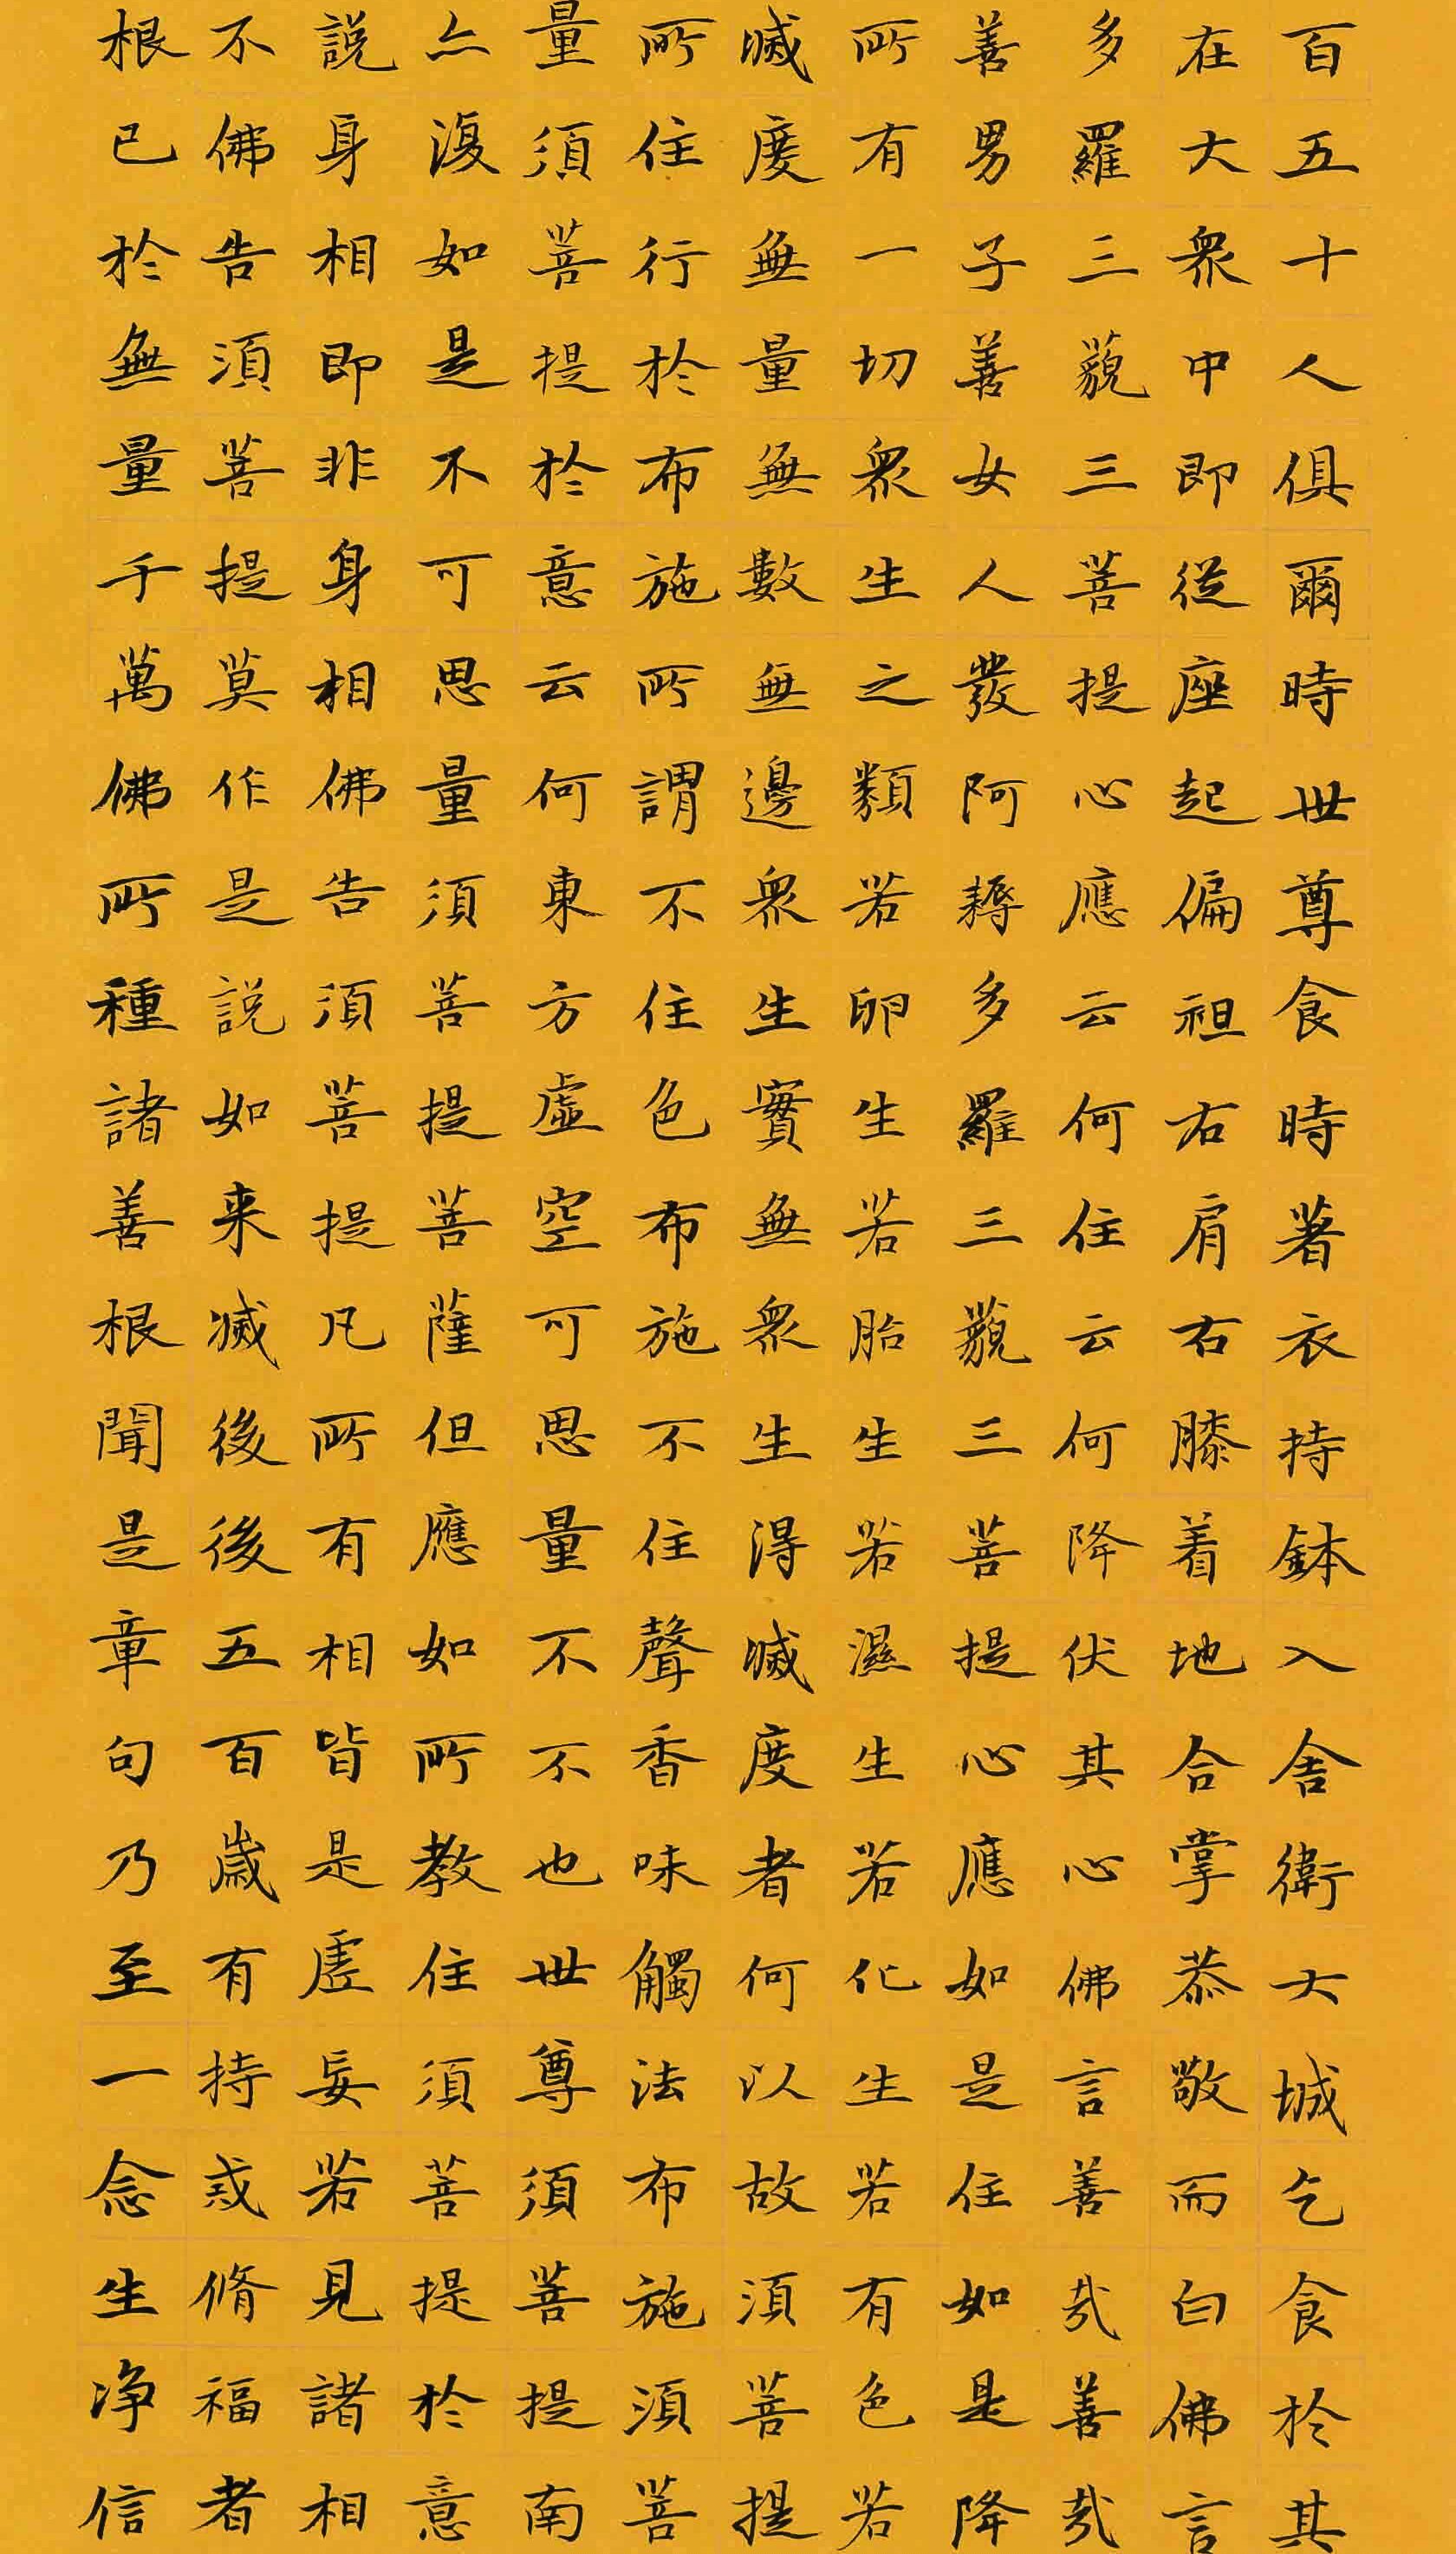 百五十人俱爾時世尊食時著衣持鉢入舍衛大城乞食於其
在大衆中即從座起偏袒右肩右膝着地合掌恭敬而白佛言
多羅三藐三菩提心應云何住云何降伏其心佛言善哉善哉
善男子善女人發阿耨多羅三藐三菩提心應如是住如是降
所有一切衆生之類若卵生若胎生若濕生若化生若有色若
滅度無量無數無邊衆生實無衆生得滅度者何以故須菩提
所住行於布施所謂不住色布施不住聲香味觸法布施須菩
量須菩提於意云何東方虛空可思量不不也世尊須菩提南
亦復如是不可思量須菩提菩薩但應如所教住須菩提於意
説身相即非身相佛告須菩提凡所有相皆是虛妄若見諸相
不佛告須菩提莫作是説如来滅後後五百歲有持戒脩福者
根已於無量千萬佛所種諸善根聞是章句乃至一念生净信